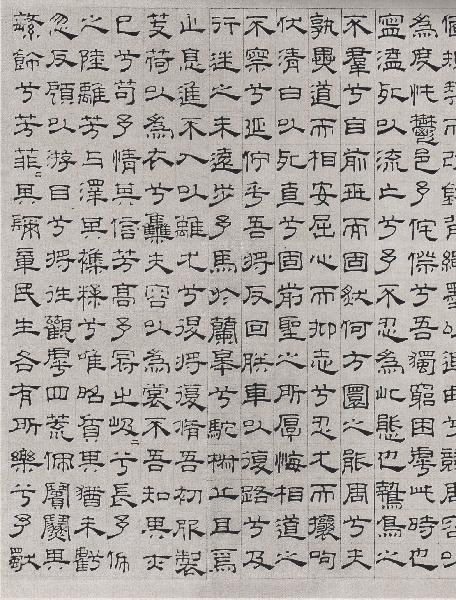 偭規榘而改錯背繩墨以追曲兮競周容以
為度忳鬱邑予侘傺兮吾獨窮困虖此時也
寧溘死以流亡兮予不忍為此態也鷙鳥之
不羣兮自前世而固然何方圜之能周兮夫
孰異道而相安屈心而抑志兮忍尤而攘呴
伏清白以死直兮固前聖之所厚悔相道之
不察兮延佇乎吾將反回朕車以復路兮及
行迷之未遠步予馬於蘭皋兮馳椒丘且焉
止息進不入以離尤兮退將復脩吾初服製
芰荷以為衣兮雧夫容以為裳不吾知其亦
已兮苟予情其信芳高予冠之岌〻兮長予佩
之陸離芳与澤其襍糅兮唯昭質其猶未虧
忽反顧以游目兮將往觀虖四荒佩繽紛其
繁飾兮芳菲〻其彌章民生各有所樂兮予獨